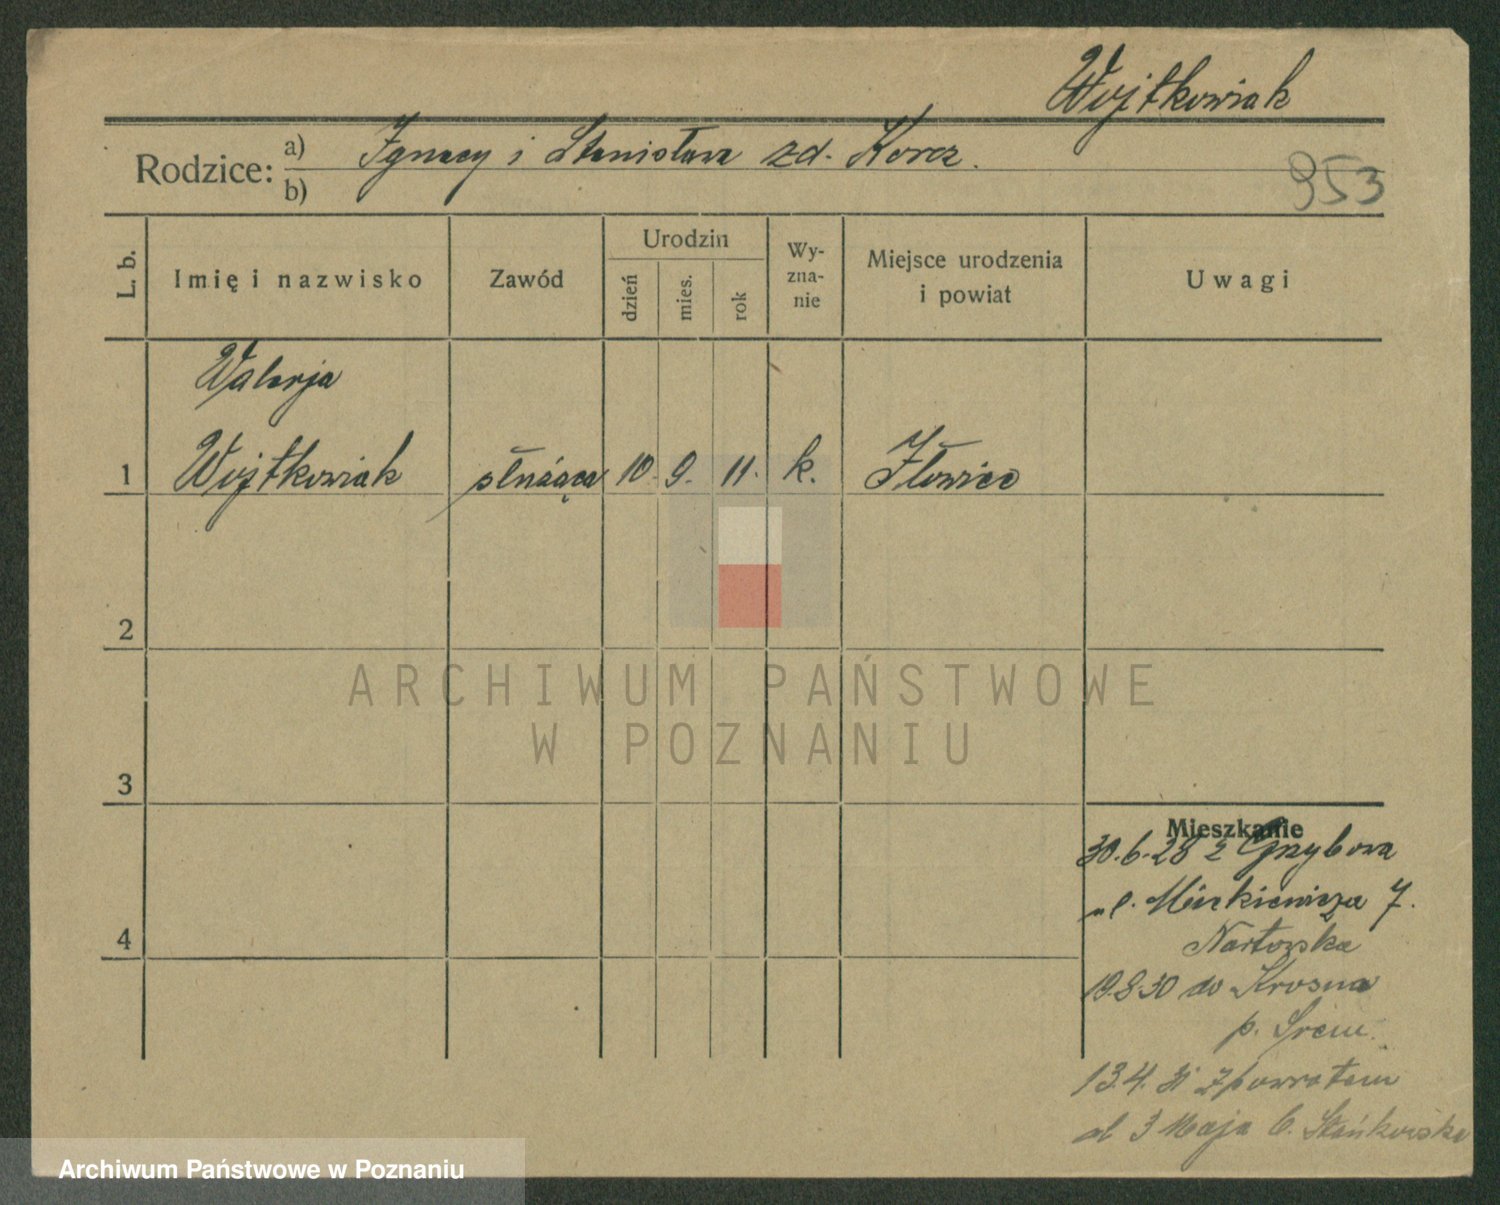 Wojtkowiak
Rodzice: a) Ignacy i Stanisława zd. Korcz.
b)
953
L. b.
Imię i nazwisko
Zawód
Urodzin
dzień
mies.
rok
Wy-
zna-
nie
Miejsce urodzenia
i powiat
Uwagi
Walerja
1 Wojtkowiak służąca 10. 9. 11. k. Iłowiec
2
3
4
Mieszkanie
30.6.28 z Grzybowa
ul. Mickiewicza 7.
Nartowska
19.8.30 do Krosna
p. Śrem.
13.4.31 z powrotem
ul 3 Maja 6. Stańkowska
ARCHIWUM PAŃSTWOWE
W POZNANIU
Archiwum Państwowe w Poznaniu